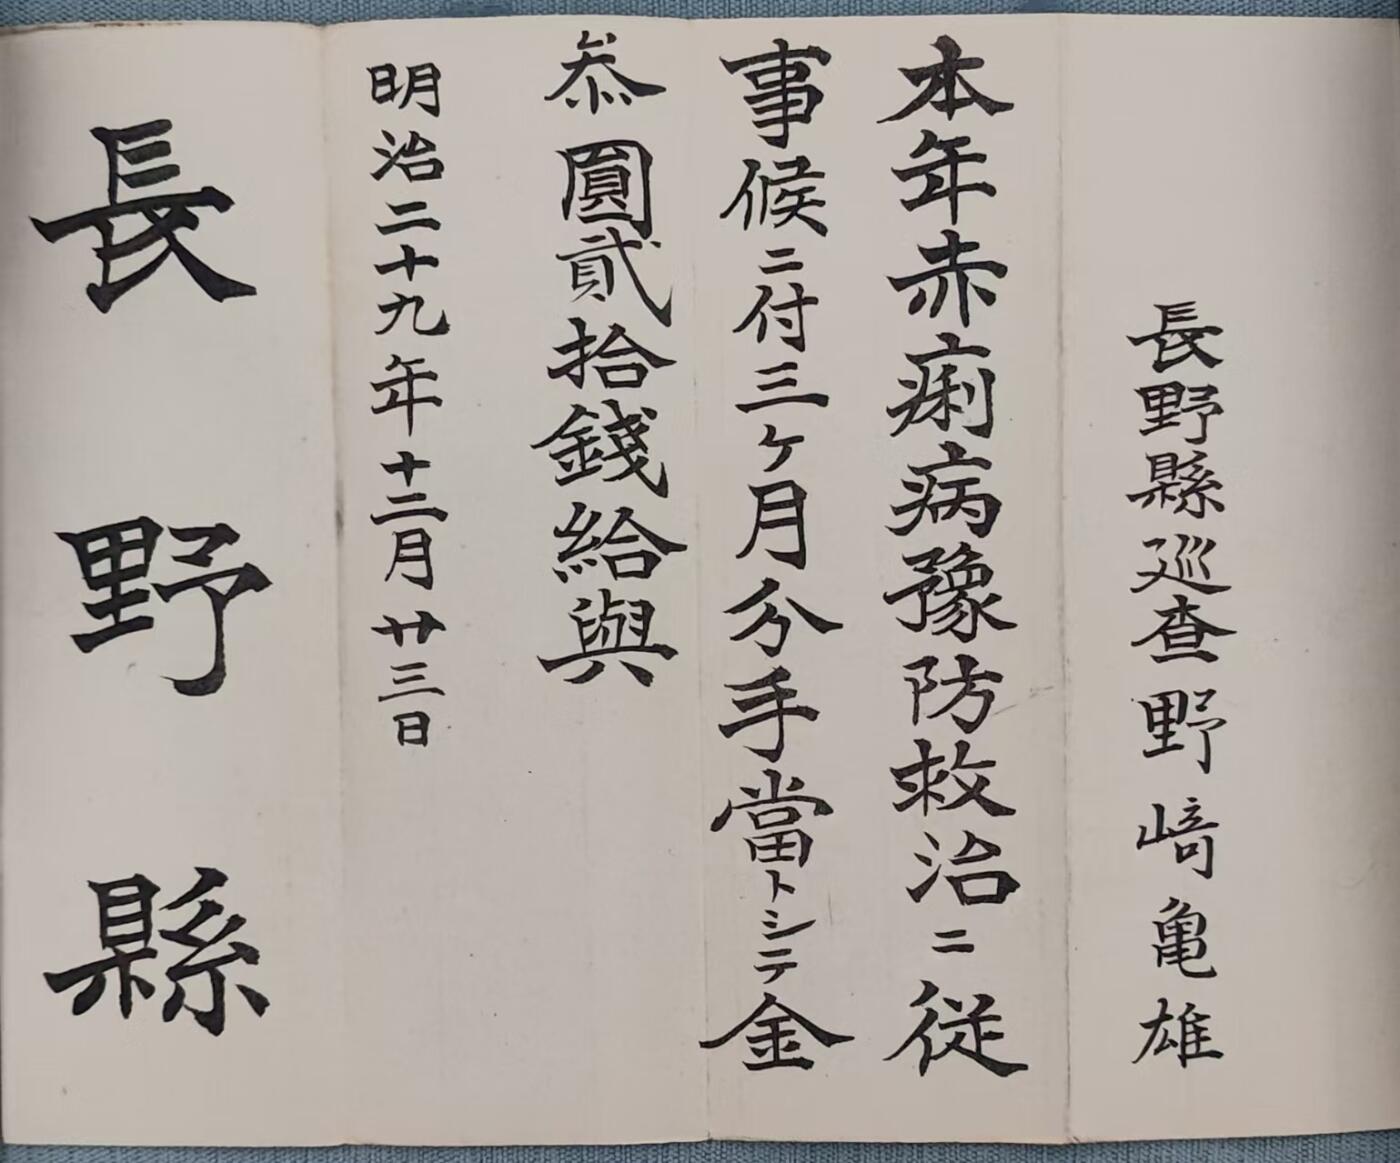 長野縣巡査野﨑亀雄
本年赤痢病豫防救治ニ従
事候ニ付三ヶ月分手當トシテ金
叅圓貳拾錢給與
明治二十九年十二月廿三日
長野縣